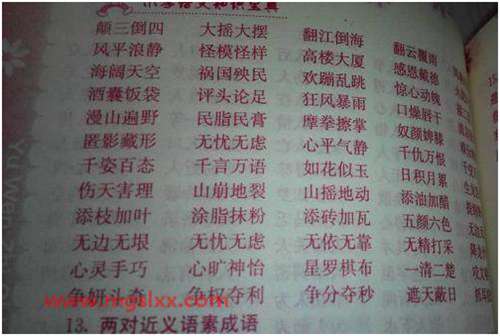 语文知识宝典
颠三倒四 大摇大摆 翻江倒海 翻云覆雨
风平浪静 怪模怪样 高楼大厦 感恩戴德
海阔天空 祸国殃民 欢蹦乱跳 惊心动魄
酒囊饭袋 评头论足 狂风暴雨 口燥唇干
漫山遍野 民脂民膏 摩拳擦掌 奴颜婢膝
匿影藏形 无忧无虑 心平气静 千仇万恨
千姿百态 千言万语 如花似玉 日积月累
伤天害理 山崩地裂 山摇地动 添油加醋
添枝加叶 涂脂抹粉 添砖加瓦 五颜六色
无边无垠 无忧无虑 无依无靠 无精打采
心灵手巧 心旷神怡 星罗棋布 一清二楚
争妍斗奇 争权夺利 争分夺秒 遮天蔽日
www.mgslxx.com
13. 两对近义语素成语